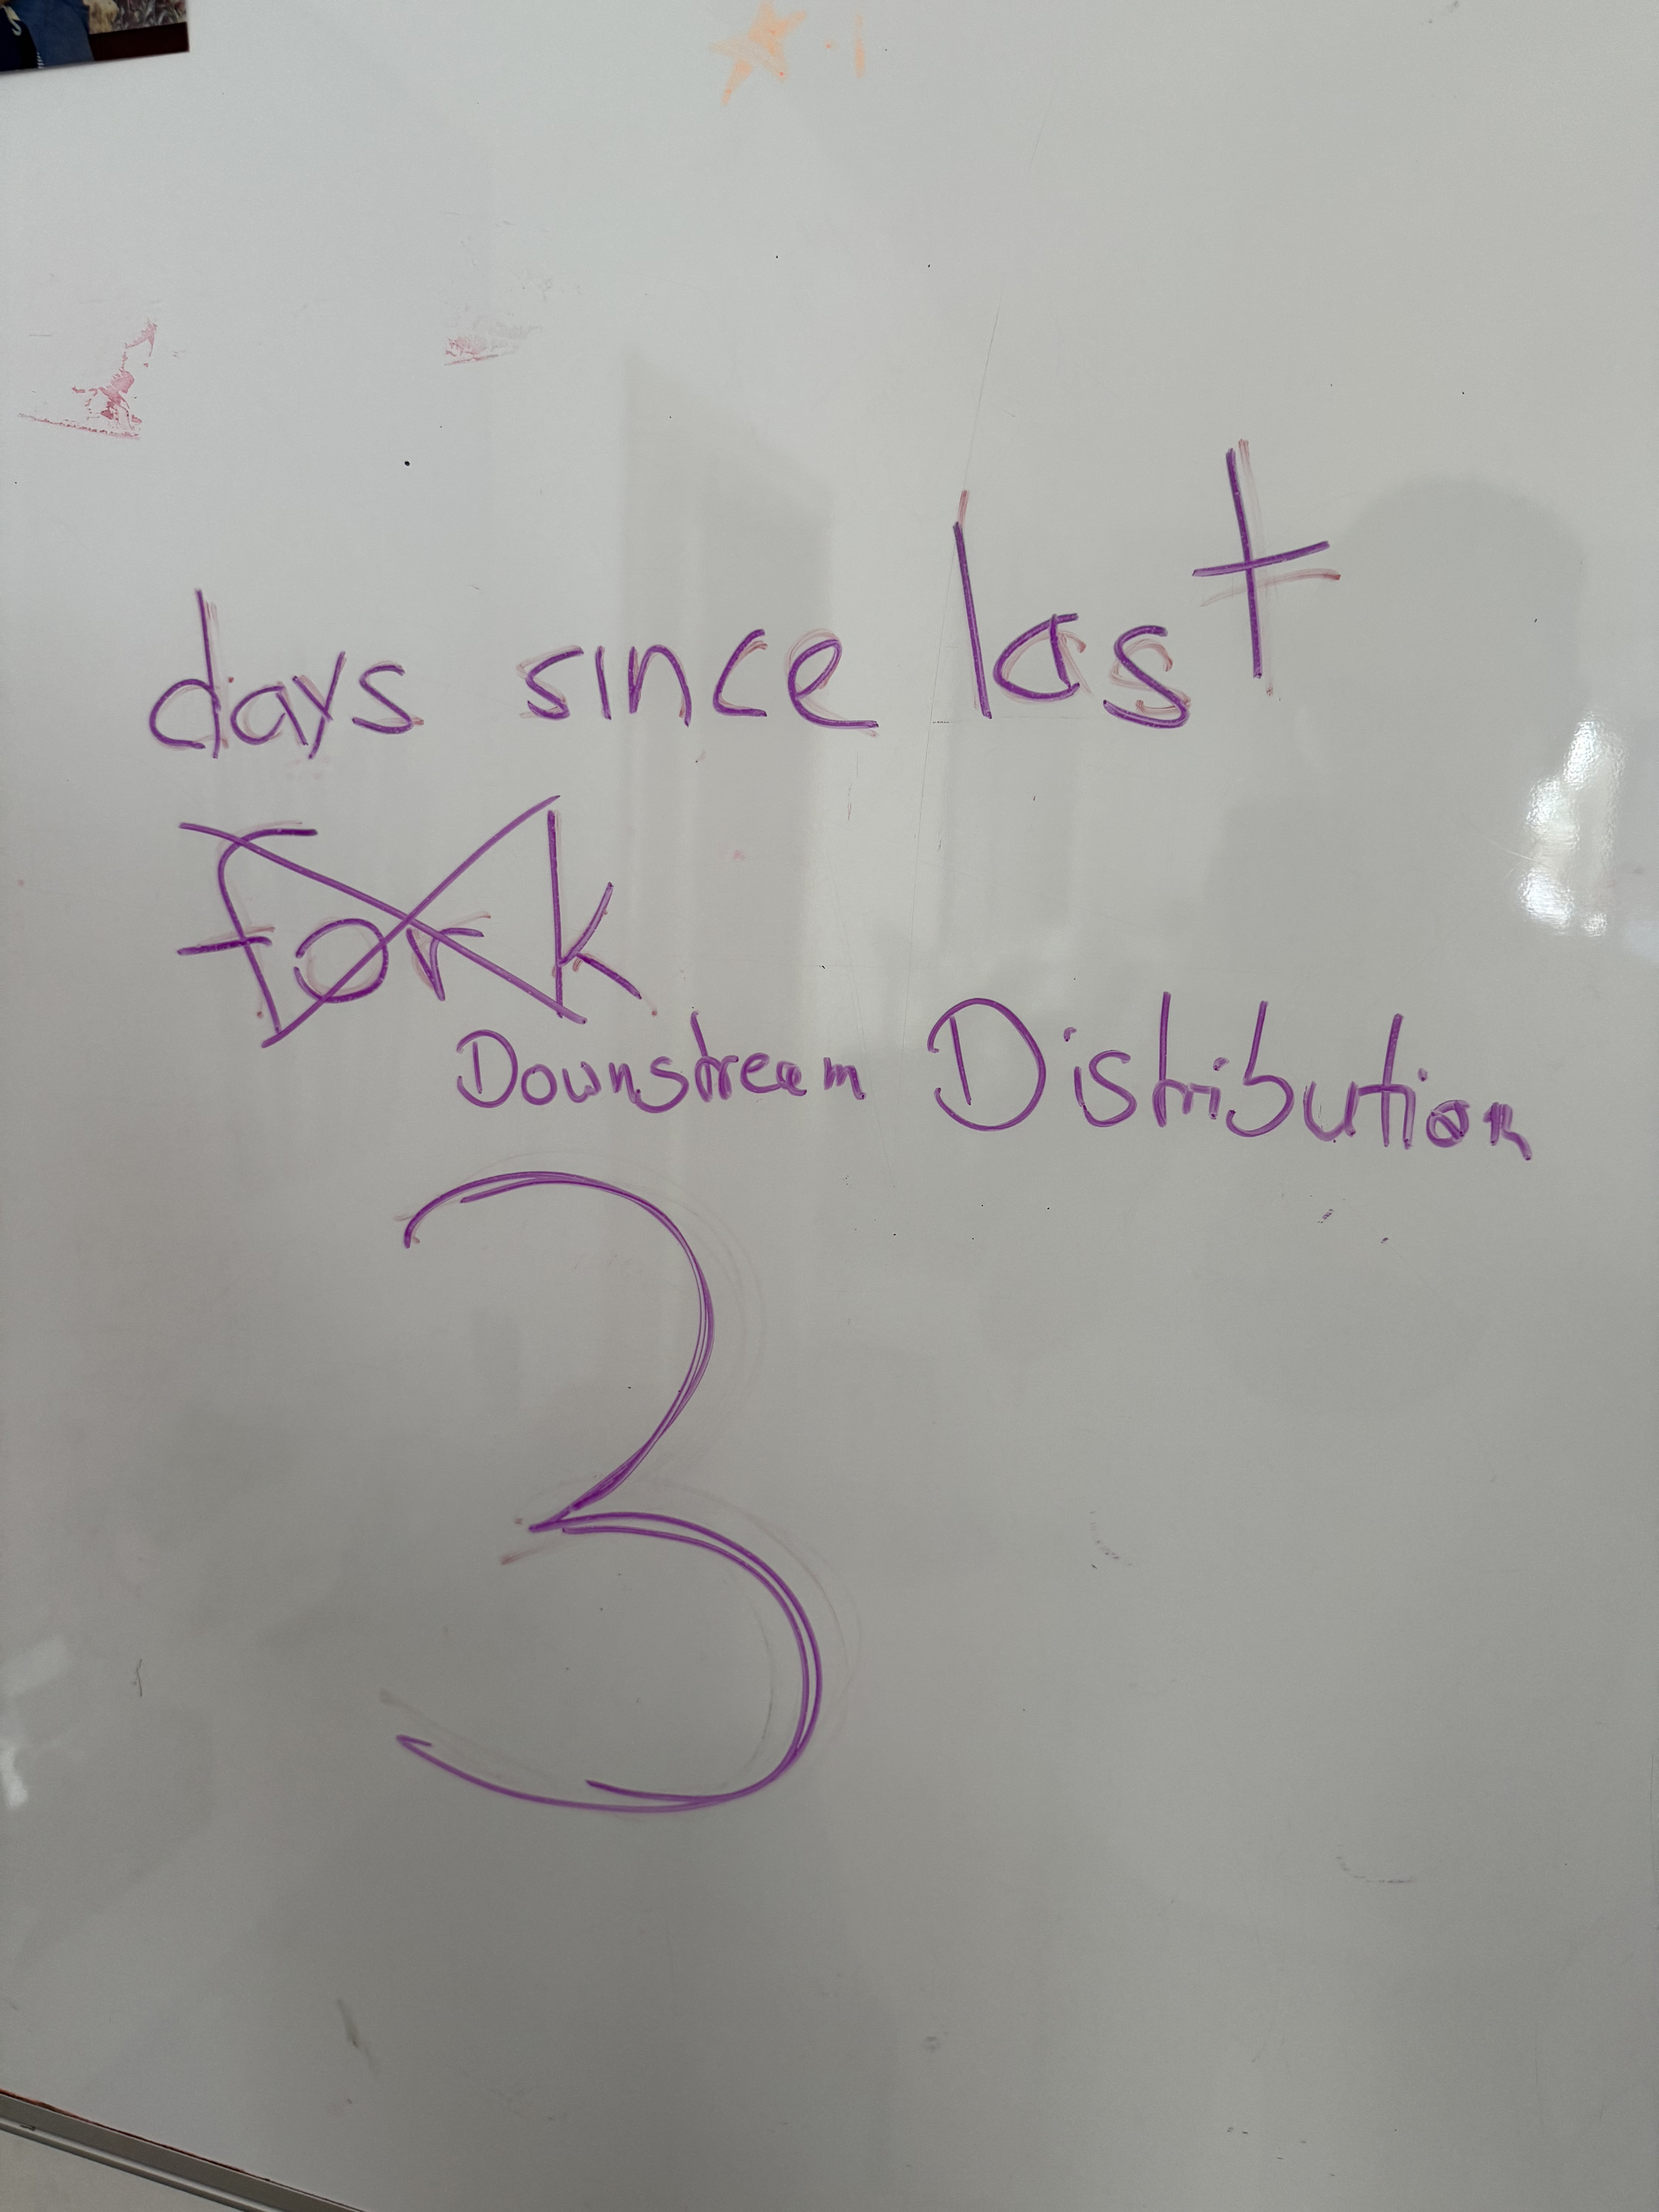 days since last
fork
Downstream Distribution
3